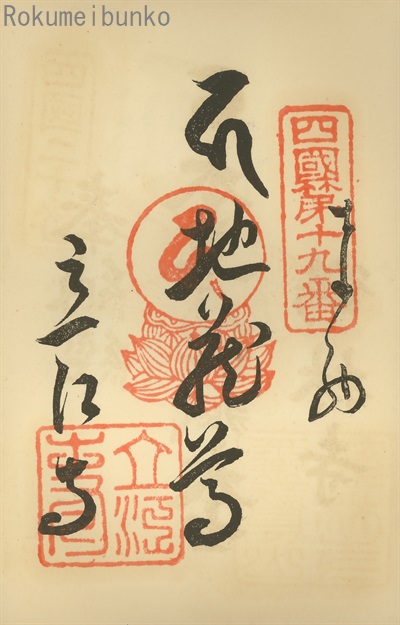 Rokumeibunko
四國第十九番
奉納
地蔵尊
立江寺
立江